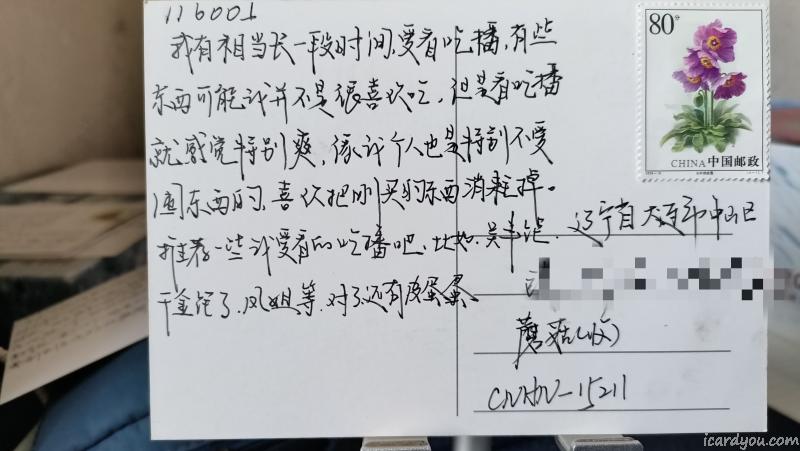 116001
我有相当长一段时间,爱看吃播,有些
东西可能我并不是很喜欢吃,但是看吃播
就感觉特别爽,像我个人也是特别不爱
囤东西的,喜欢把刚买的东西消耗掉。
推荐一些我爱看的吃播吧,比如
千金 了、凤姐等,对了还有皮蛋蛋、
80分
CHINA中国邮政
辽宁省大连市中山区
蘑菇(收)
CNHN-15211
icardyou.com